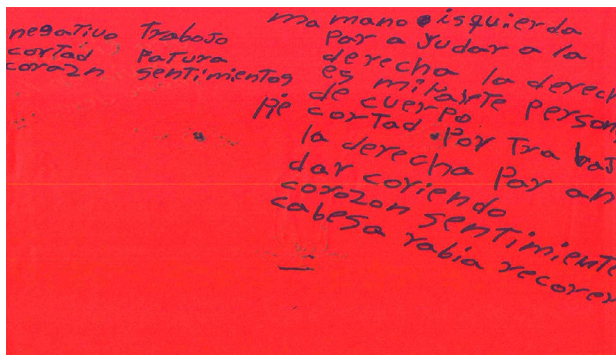 negativo trabajo
cortad Patura
corazn sentimientos
ma mano isquierda
Par a yudar a la
derecha la derech
es mi parte person
de cuerpo
Pie cortad Por Tra baj
la derecha Par an
dar coriendo
corozon sentimiente
cabesa rabia recorer